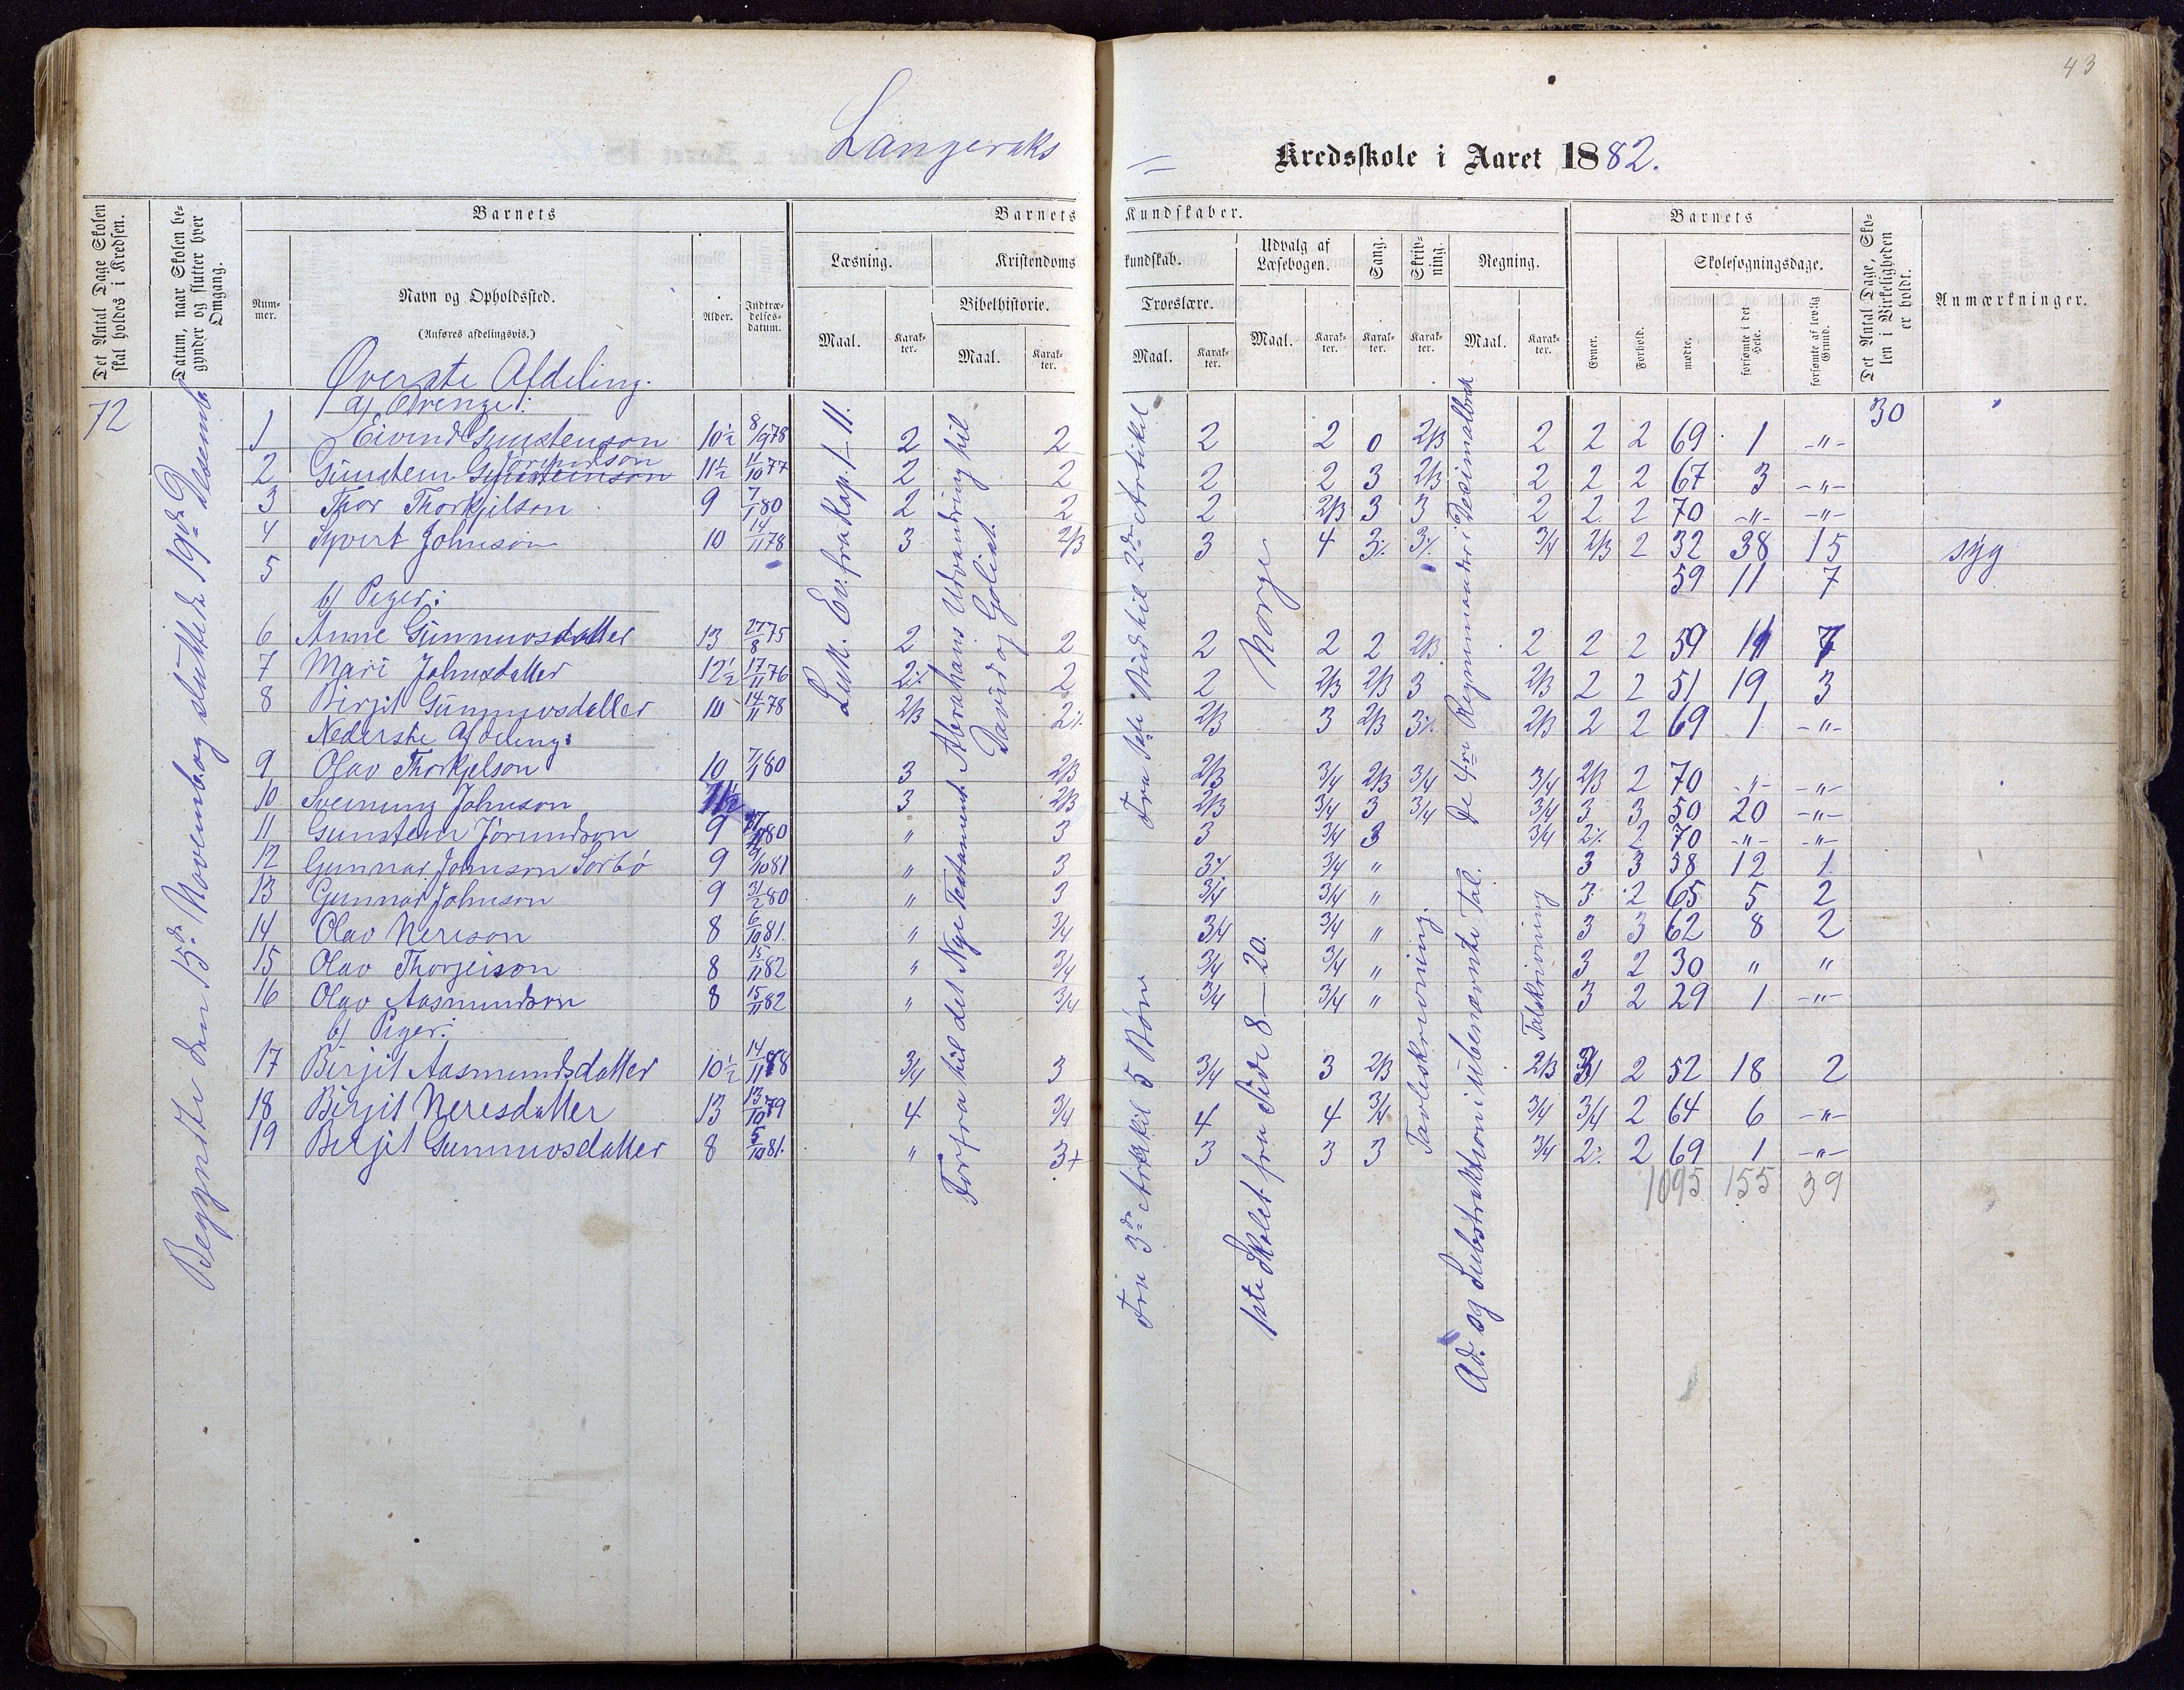 43
Langeraks = Kredsskole i Aaret 1882.
Det Antal Dage Skolen skal holdes i Kredsen.
Datum, naar Skolen begynder og slutter hver Omgang.
Barnets
Nummer.
Navn og Opholdssted.
(Anføres afdelingsvis.)
Alder.
Indtrædelsesdatum.
Barnets Kundskaber.
Læsning.
Maal.
Karakter.
Kristendomskundskab.
Bibelhistorie.
Maal.
Karakter.
Troeslære.
Maal.
Karakter.
Udvalg af Læsebogen.
Maal.
Karakter.
Sang.
Karakter.
Skrivning.
Karakter.
Regning.
Maal.
Karakter.
Barnets
Evner.
Forhold.
Skolesøgningsdage.
mødte.
forsømte i det Hele.
forsømte af lovlig Grund.
Det Antal Dage, Skolen i Virkeligheden er holdt.
Anmærkninger.
72
30
Begyndte den 15de Novemb. og sluttede 19de Desemb.
Luk. Ev. fra Kap. 1–11.
Abrahams Udvandring til
David og Goliat.
Forfra til det Nye Testament
Fra 1ste Bud til 2den Artikel
Fra 3de Artikel 5 Bøn
Norge
1ste Skolet fra Side 8–20.
Tavleskrivning.
De 4re Regnmaader i Desimalbrøk
Ad. og Substraktion i ubenævnte Tal.
Talskrivning
Øverste Afdeling.
a) Drenge:
1 Eivind Gunstenson 10½ 8/9 78 2 2 2 2 0 2/3 2 2 2 69 1 -"-
2 Gunstein Gunsteinson Jørundson 11½ 11/10 77 2 2 2 2 3 2/3 2 2 2 67 3 -"-
3 Thor Thorkjelson 9 7/1 80 2 2 2 2/3 3 3 2 2 2 70 -"- -"-
4 Syvert Johnson 10 14/11 78 3 2/3 3 4 3% 3% 3/4 2/3 2 32 38 15 syg
5 59 11 7
b) Piger:
6 Anne Gunnuvsdatter 13 27/8 75 2 2 2 2 2 2/3 2 2 2 59 11 7
7 Mari Johnsdatter 12½ 17/11 76 2% 2 2 2/3 2/3 3 2/3 2 2 51 19 3
8 Birgit Gunnuvsdatter 10 14/11 78 2/3 2% 2/3 3 2/3 3% 2/3 2 2 69 1 -"-
Nederste Afdeling:
9 Olav Thorkjelson 10 7/1 80 3 2/3 2/3 3/4 2/3 3/4 3/4 2/3 2 70 -"- -"-
10 Sveinung Johnson 11½ 3 2/3 2/3 3/4 3 3/4 3/4 3 3 50 20 -"-
11 Gunstein Jørundson 9 80 " 3 3 3/4 3 3/4 2% 2 70 -"- -"-
12 Gunnar Johnson Sorbö 9 9/10 81 " 3 3% 3/4 " 3 3 58 12 1
13 Gunnar Johnson 9 31/2 80 " 3 3/4 3/4 " 3 2 65 5 2
14 Olav Nerison 8 6/10 81. " 3/4 3/4 3/4 " 3 3 62 8 2
15 Olav Thorgeison 8 15/11 82 " 3/4 3/4 3/4 " 3 2 30 " "
16 Olav Aasmundson 8 15/11 82 " 3/4 3/4 3/4 " 3 2 29 1 -"-
b) Piger:
17 Birjit Aasmundsdatter 10½ 14/11 78 3/4 3 3/4 3 2/3 2/3 3/4 2 52 18 2
18 Birjit Nerisdatter 13 13/10 79 4 3/4 4 4 3/4 3/4 3/4 2 64 6 -"-
19 Birjit Gunnuvsdatter 8 5/10 81. " 3+ 3 3 3 3/4 2% 2 69 1 -"-
1095 155 39